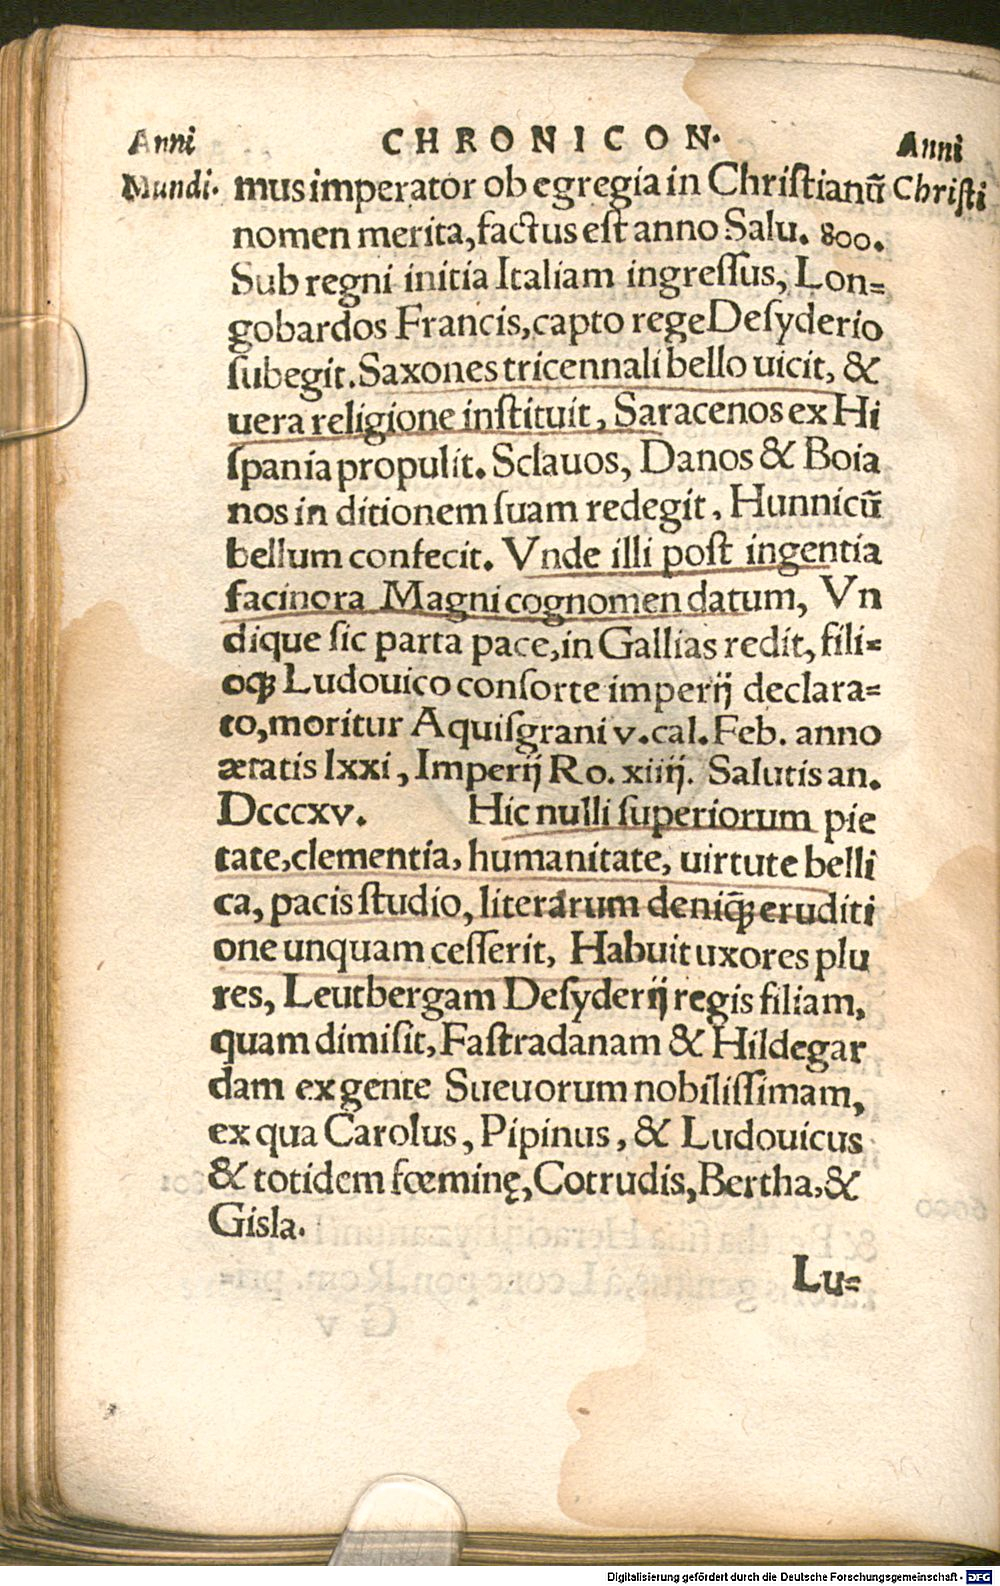 Anni CHRONICON. Anni
Mundi. mus imperator ob egregia in Chriſtianū Chriſti
nomen merita, factus eſt anno Salu. 800.
Sub regni initia Italiam ingreſſus, Lon=
gobardos Francis, capto rege Deſyderio
ſubegit. Saxones tricennali bello uicit, &
uera religione inſtituit, Saracenos ex Hi
ſpania propulit. Sclauos, Danos & Boia
nos in ditionem ſuam redegit, Hunnicū
bellum confecit. Vnde illi poſt ingentia
facinora Magni cognomen datum, Vn
dique ſic parta pace, in Gallias redit, fili=
oq; Ludouico conſorte imperij declara=
to, moritur Aquiſgrani v. cal. Feb. anno
ætatis lxxi, Imperij Ro. xiiij. Salutis an.
Dcccxv. Hic nulli ſuperiorum pie
tate, clementia, humanitate, uirtute belli
ca, pacis ſtudio, literarum deniq; eruditi
one unquam ceſſerit, Habuit uxores plu
res, Leutbergam Deſyderij regis filiam,
quam dimiſit, Faſtradanam & Hildegar
dam ex gente Sueuorum nobiliſſimam,
ex qua Carolus, Pipinus, & Ludouicus
& totidem fœminę, Cotrudis, Bertha, &
Giſla.
Lu=
Digitalisierung gefördert durch die Deutsche Forschungsgemeinschaft - DFG